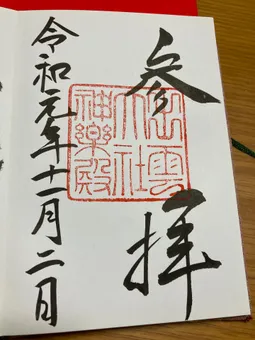 参拝
出雲
大社
神樂殿
令和元年十一月二日